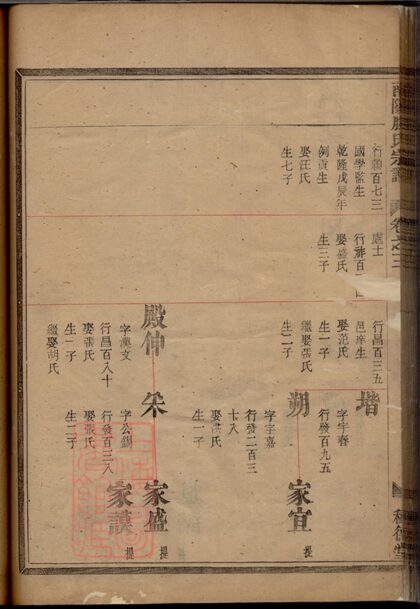 氏宗譜
卷之三
行
百七三
國學監生
乾隆戊辰年
例貢生
娶汪氏
生七子
處士
行
百
娶盛氏
生三子
行昌百三五
邑庠生
娶范氏
生一子
繼娶張氏
生二子
堦
字宇春
行發百九五
朔
家宣
提
字宇嘉
行發二百三
十八
娶洪氏
生一子
殿仲
字漢文
行昌百八十
娶張氏
生一子
繼娶胡氏
家盛
提
字公錫
行發百三八
娶張氏
生三子
家謨
提